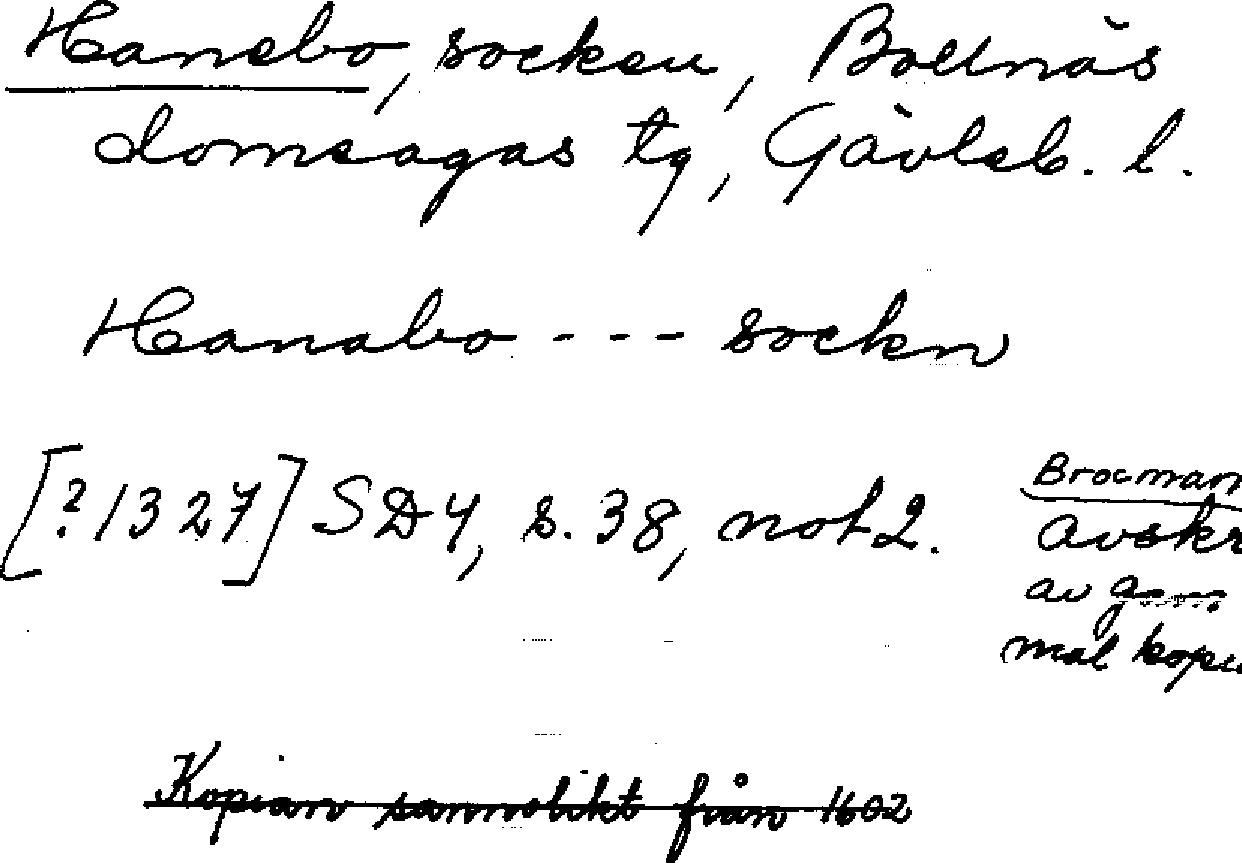 Hanebo, socken, Bollnäs
domsagas tg, Gävleb. l.
Hanabo --- sockn
[?1327] SD4, s. 38, not 2.
Brocman
avskr
av gam
mal kopia
Kopian sannolikt från 1602